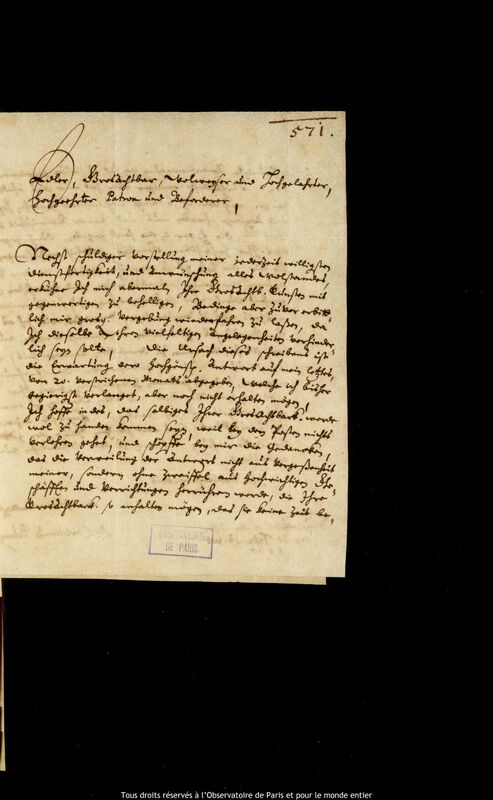 571.
Edler, Großachtbar, Wolweyser und Hochgelahrter,
Hochgeehrter Patron und Beförderer,
Nechst schuldiger vorstellung meiner jederzeit willigsten
dienstfertigkeit, und Anwünschung alles Wolstandes,
erkühne Ich mich abermals, Ihre Großachtb. Gunsten mit
gegenwertigen zu behelligen. Bedinge aber zuvor
mir großg. vergebung wiederfahren zu laßen, da
Ich dieselbe in ihren vielfeltigen angelegenheiten verhinder-
lich seyn solte. Die Ursach dieses schreibens ist
die Erwartung dero Hochgönst. Antwort auf mein letztes,
vom 20. verstrichenen Monats abgegeben, Welche ich bisher
begierigst verlanget, aber noch nicht erhalten mögen,
Ich hoffe indes, das selbiges Ihrer Großachtbark. werde
wol zu handen kommen seyn, weil bey den Posten nichts
verlohren gehet, und schöpffe bey mir die gedancken,
das die verweilung der Antwort nicht aus vergeßenheit
meiner, sondern ohne zweiffel aus hochwichtigen Ge-
schäfften und verrichtungen herrühren werde, die Ihre
Großachtbark. so anhalten mögen, das sie keine zeit be-
OBSERVATOIRE
DE PARIS
Tous droits réservés à l'Observatoire de Paris et pour le monde entier